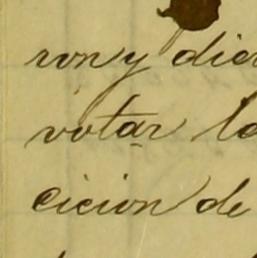 ron y dier
votar la
cicion de